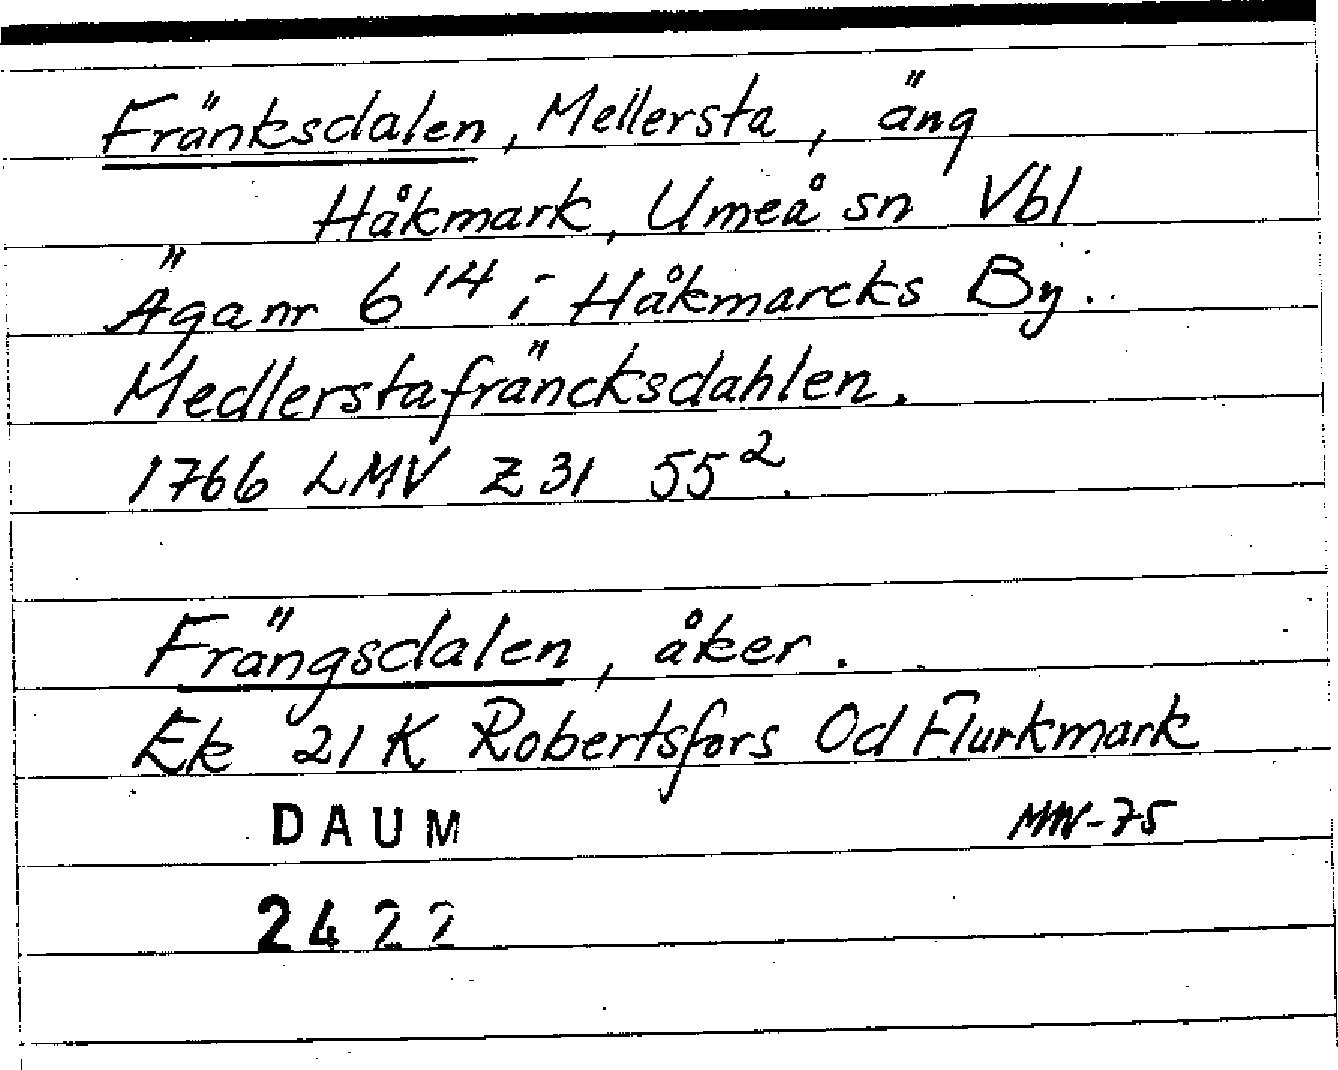 Fränksdalen, Mellersta, äng
Håkmark, Umeå sn Vbl
Äganr 6¹⁴ i Håkmarcks By.
Medlerstafräncksdahlen.
1766 LMV Z 31 55².
Frängsdalen, åker.
Ek 21 K Robertsfors Od Flurkmark
DAUM MW-75
2422